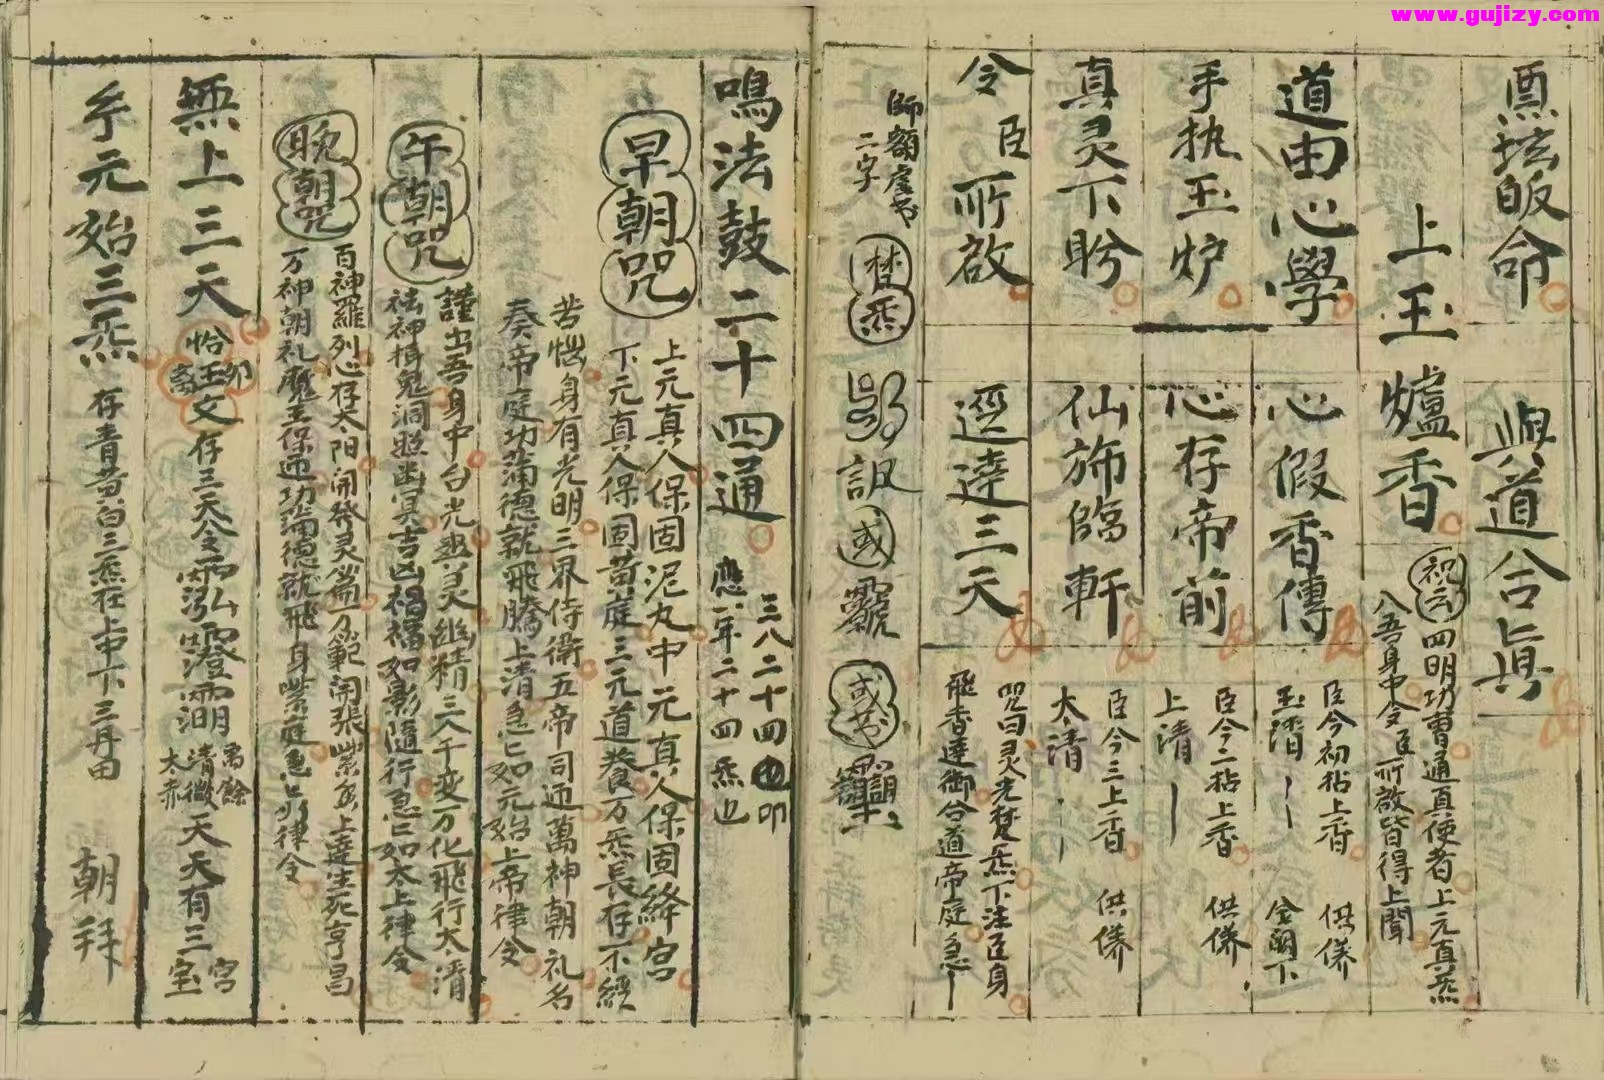 www.gujizy.com
命 與道合真
上玉爐香
祝云
四明功曹通真使者上元真炁
八吾身中令臣所啟皆得上聞
道由心學 心假香傳
臣今初拈上香 供养
玉清 金闕下
手执玉炉 心存帝前
臣今二拈上香 供养
上清
真灵下盻 仙斾臨軒
臣今三上香 供养
太清
令臣所啟 逕達三天
咒曰灵光梵炁下注臣身
飛香達御合道帝庭急
師額虚书
二字
鳴法鼓二十四通
三八二十四也印
應一年二十四炁也
早朝咒
上元真人保固泥丸中元真人保固絳宫
下元真人保固黄庭三元道養万炁長存不經
苦惱身有光明三界侍衛五帝司迎萬神朝礼名
奏帝庭功蒲德就飛騰上清急如元始上帝律令
午朝咒
謹出吾身中台光爽灵幽精三人千变万化飛行太清
法神楫鬼洞照幽冥吉凶禍福如影隨行急如太上律令
晚朝咒
百神羅列心存太阳開發灵篇万範開張紫炁上達生死亨昌
万神朝礼魔王保迎功蒲德就飛身紫庭急律令
無上三天
存三天
禹餘
清微
大赤
天天有三
宫
玄元始三炁 存青黄白三炁在上中下三丹田 朝拜